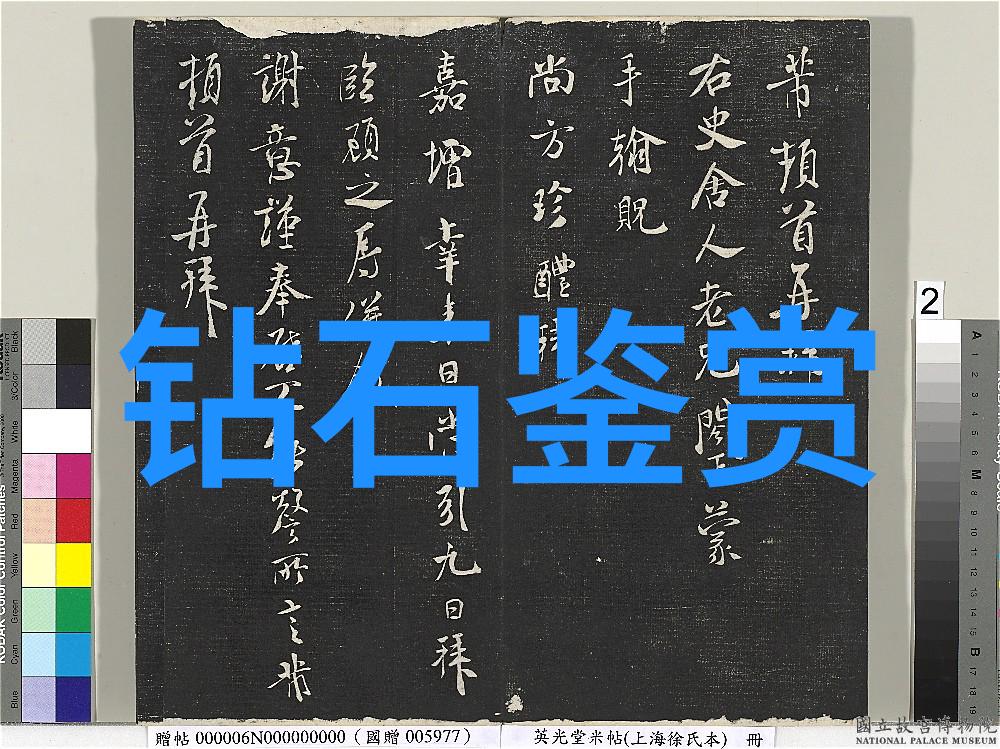 芾頓首再拜
右史舍人老兄閣下蒙
手翰貺
尚方珍醴
嘉增幸
日
引九日拜
臨顧之辱
謝意謹奉啓
所言芾
頓首再拜
钻石鉴赏
2
贈帖 000006N000000000 (國贈 005977)
英光堂米帖(上海徐氏本) 冊
國立故宮博物院
NATIONAL PALACE MUSEUM
Black
3/Color
White
Magenta
Red
Yellow
Green
Cyan
Blue
A
1
2
3
4
5
6
M
8
9
10
11
12
13
14
15
B
17
18
19